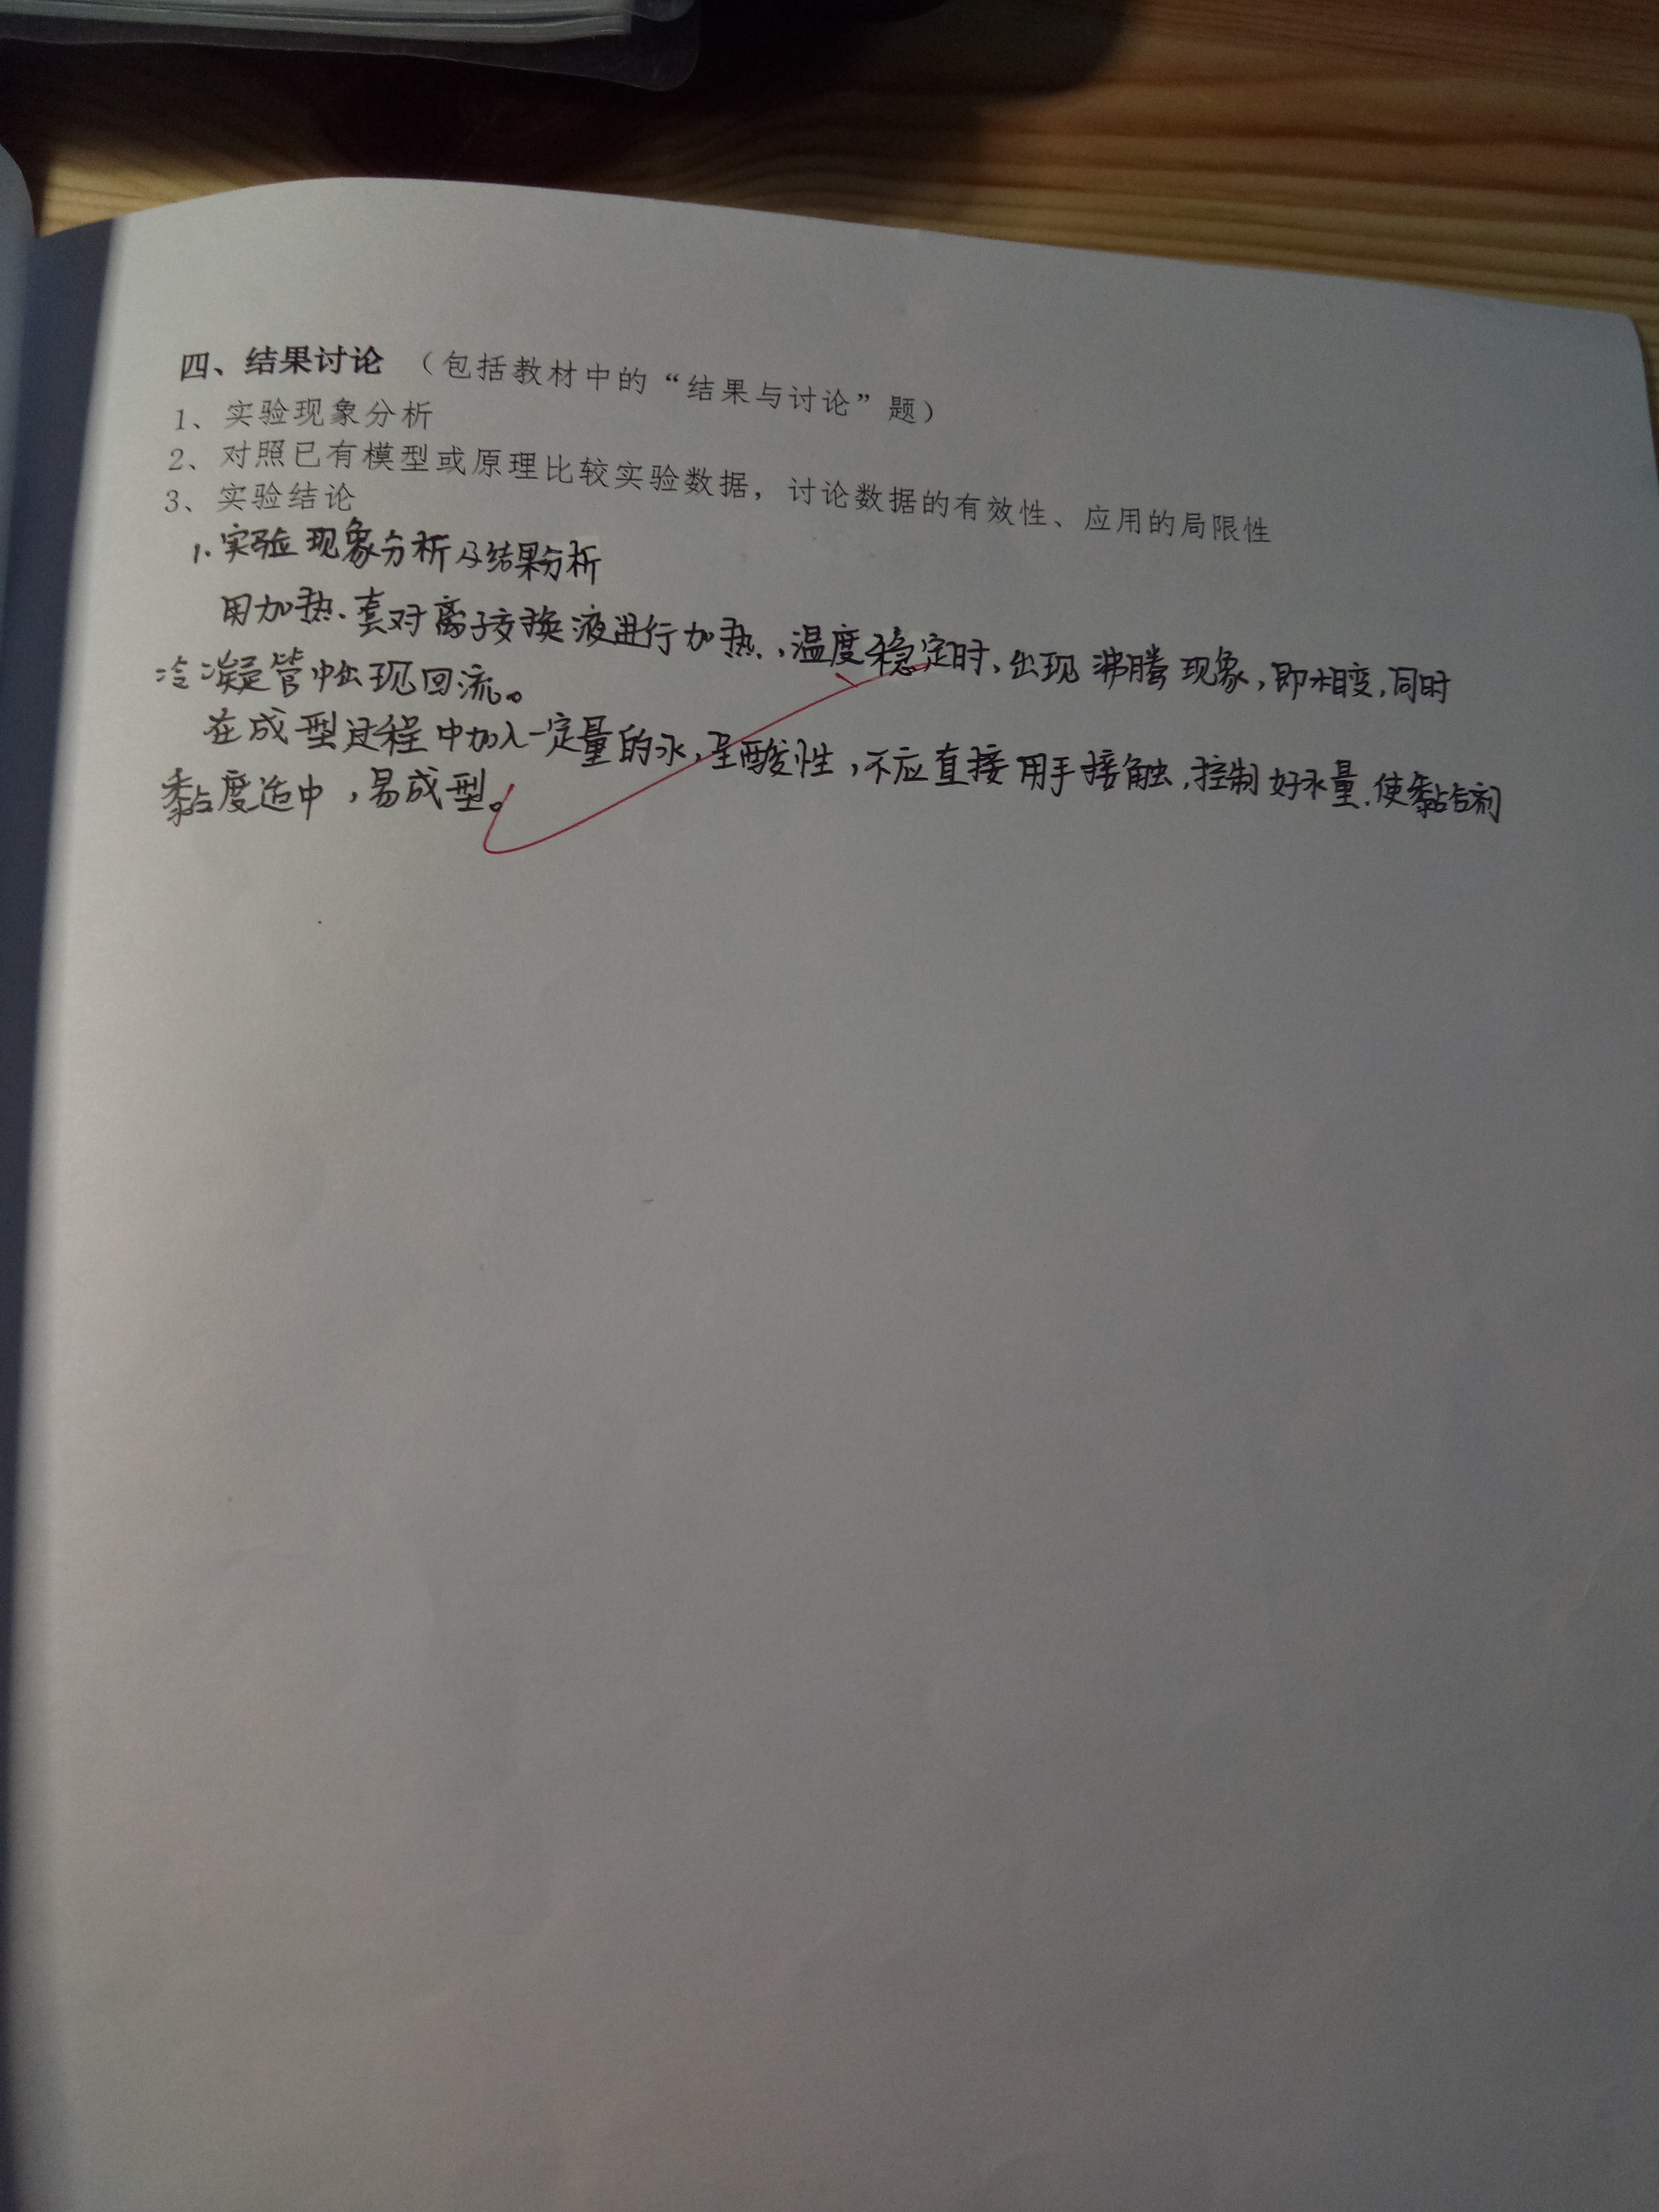 四、结果讨论 （包括教材中的“结果与讨论”题）
1、实验现象分析
2、对照已有模型或原理比较实验数据，讨论数据的有效性、应用的局限性
3、实验结论
1.实验现象分析及结果分析
用加热套对离子交换液进行加热,温度稳定时,出现沸腾现象,即相变,同时
冷凝管中出现回流。
在成型过程中加入一定量的水,呈酸性,不应直接用手接触,控制好水量,使黏合剂
黏度适中,易成型。